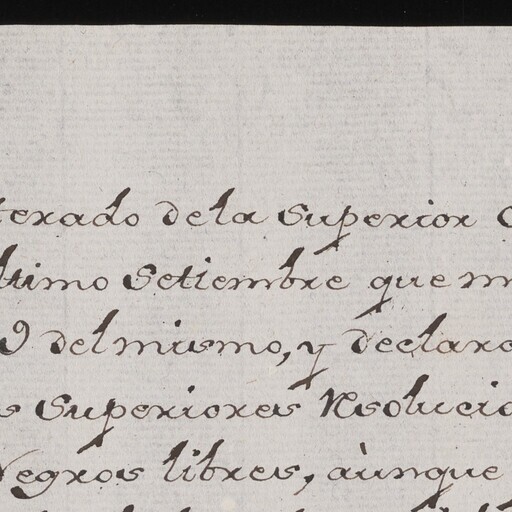 terado dela Superior
ltimo Setiembre que m
9 del mismo, y declaro
s Superiores Resolucio
Negros libres, aùnque